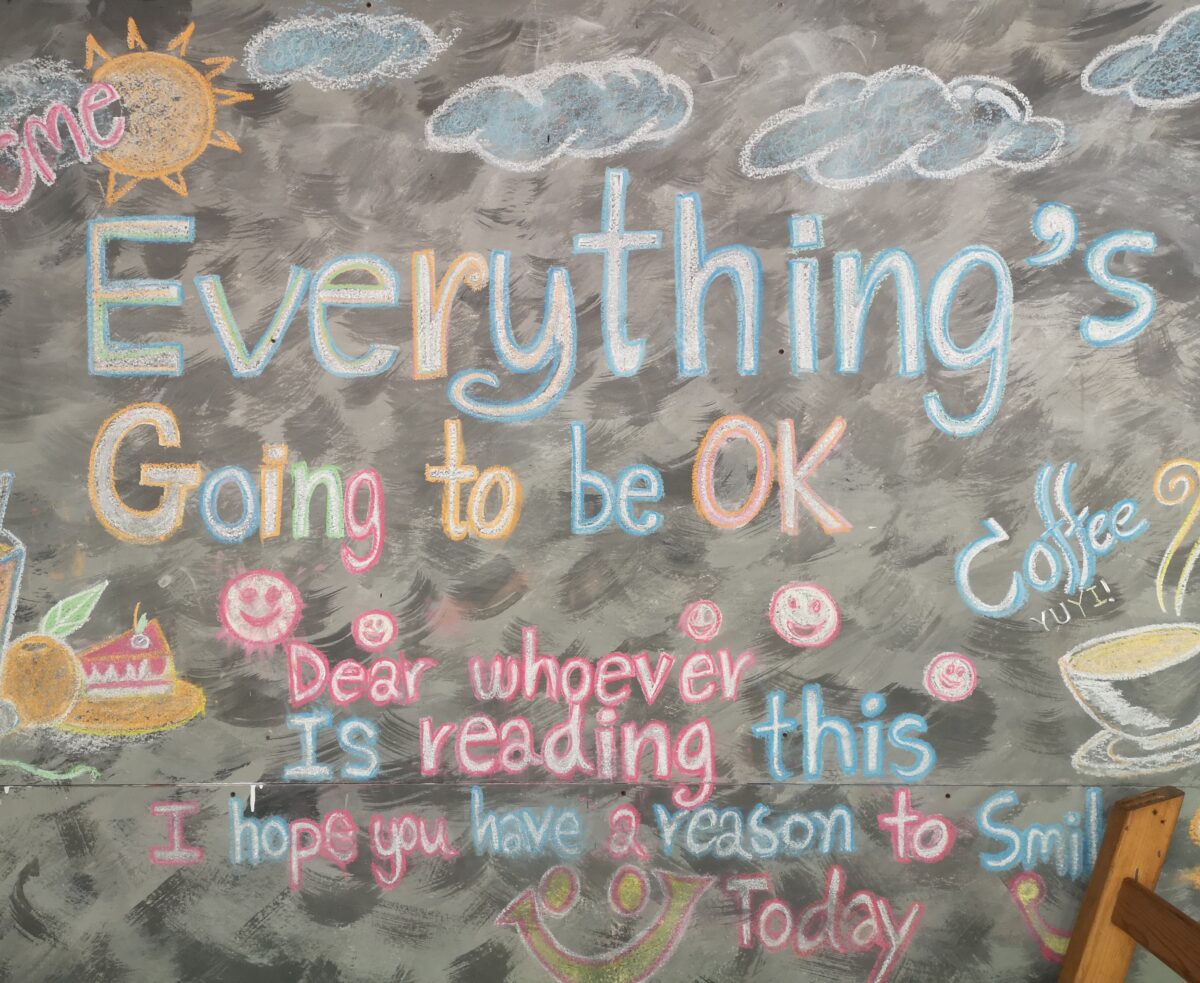 Everything's
Going to be OK
Coffee
YUYI!
Dear whoever
Is reading this
I hope you have a reason to Smil
Today